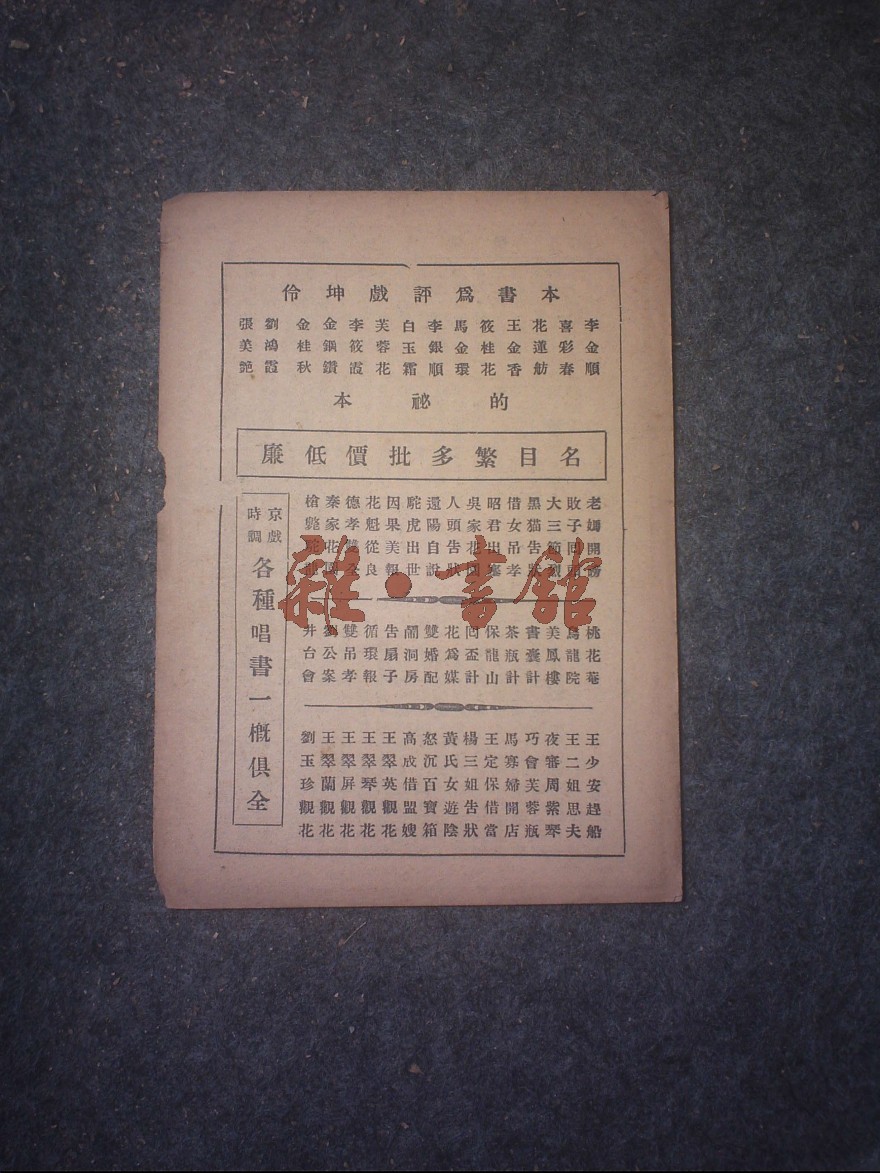 本書爲評戲坤伶
李金順
喜彩春
花蓮舫
王金香
筱桂花
馬金環
李銀順
白玉霜
芙蓉花
李筱霞
金鋼鑽
金桂秋
劉鴻霞
張美艶
的祕本
名目繁多批價低廉
老媽開嗙
敗子回頭
大三節烈
黑猫告狀
借女吊孝
昭君出塞
吳家花園
人頭告狀
還陽自說
駝虎出世
因果美報
花魁從良
德孝雙全
秦家花園
槍斃駝
桃花菴
烏龍院
美鳳樓
書囊計
茶瓶計
保龍山
回盃計
花爲媒
雙婚配
鬧洞房
告扇子
循環報
雙吊孝
劉公案
井台會
王少安趕船
王二姐思夫
夜審周紫琴
巧會芙蓉瓶
馬寡婦開店
王定保借當
楊三姐告狀
黃氏女遊陰
怒沉百寶箱
高成借盟嫂
王翠英觀花
王翠琴觀花
王翠屏觀花
王翠蘭觀花
劉玉珍觀花
京戲
時調
各種唱書一概俱全
雜·書舘